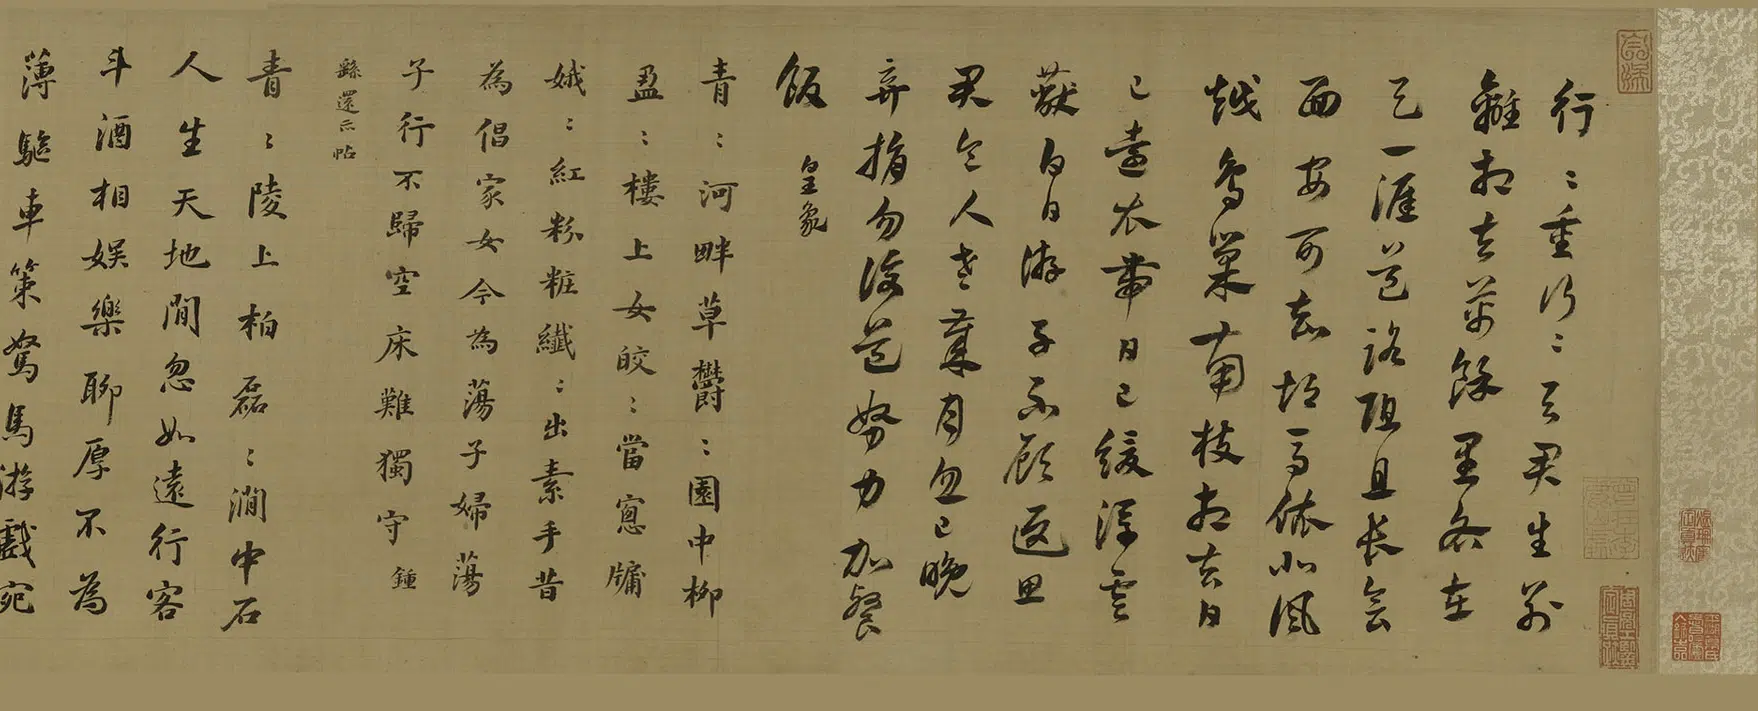 行〻重行〻与君生别
離相去萬餘里各在
天一涯道路阻且長會
面安可知胡馬依北風
越鳥巢南枝相去日
已遠衣帶日已緩浮雲
蔽白日游子不顧返思
君令人老歲月忽已晚
弃捐勿復道努力加餐
飯 皇象
青〻河畔草鬱〻園中柳
盈〻樓上女皎〻當窻牖
娥〻紅粉粧纖〻出素手昔
為倡家女今為蕩子婦蕩
子行不歸空床難獨守 鍾
繇還示帖
青〻陵上柏磊〻澗中石
人生天地間忽如遠行客
斗酒相娛樂聊厚不為
薄驅車策駑馬游戲宛